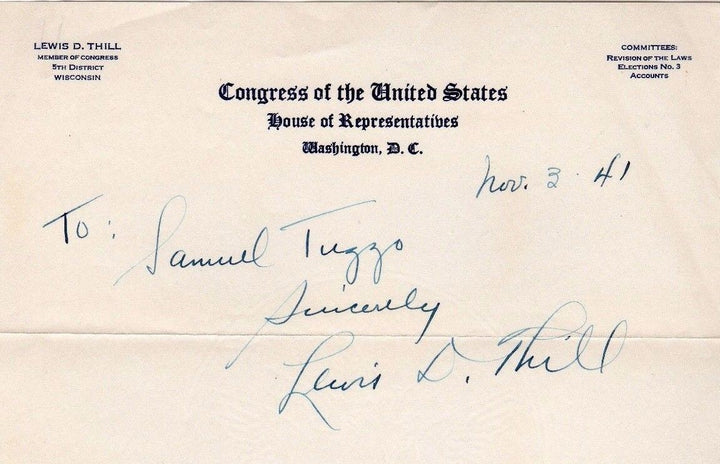 LEWIS D. THILL
MEMBER OF CONGRESS
5TH DISTRICT
WISCONSIN
COMMITTEES:
REVISION OF THE LAWS
ELECTIONS NO. 3
ACCOUNTS
Congress of the United States
House of Representatives
Washington, D. C.
Nov. 3. 41
To:
Samuel Tuzzo
Sincerely
Lewis D. Thill